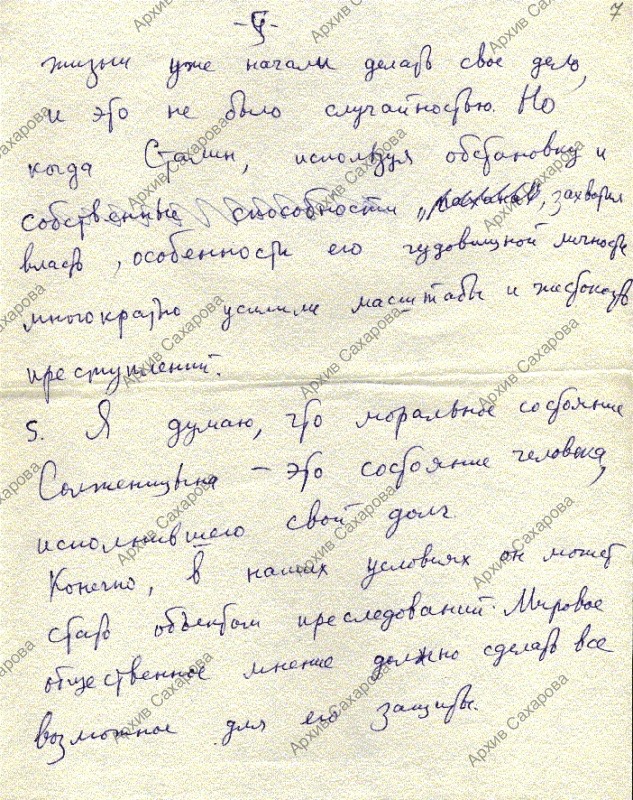 7
-5-
жизни уже начали делать свое дело,
и это не было случайностью. Но
когда Сталин, используя обстановку и
собственные способности „пахана", захватил
власть, особенности его чудовищной личности
многократно усилили масштабы и жестокость
преступлений.
5. Я думаю, что моральное состояние
Солженицына – это состояние человека,
исполнившего свой долг.
Конечно, в наших условиях он может
стать объектом преследований. Мировое
общественное мнение должно сделать все
возможное для его защиты.
Архив Сахарова